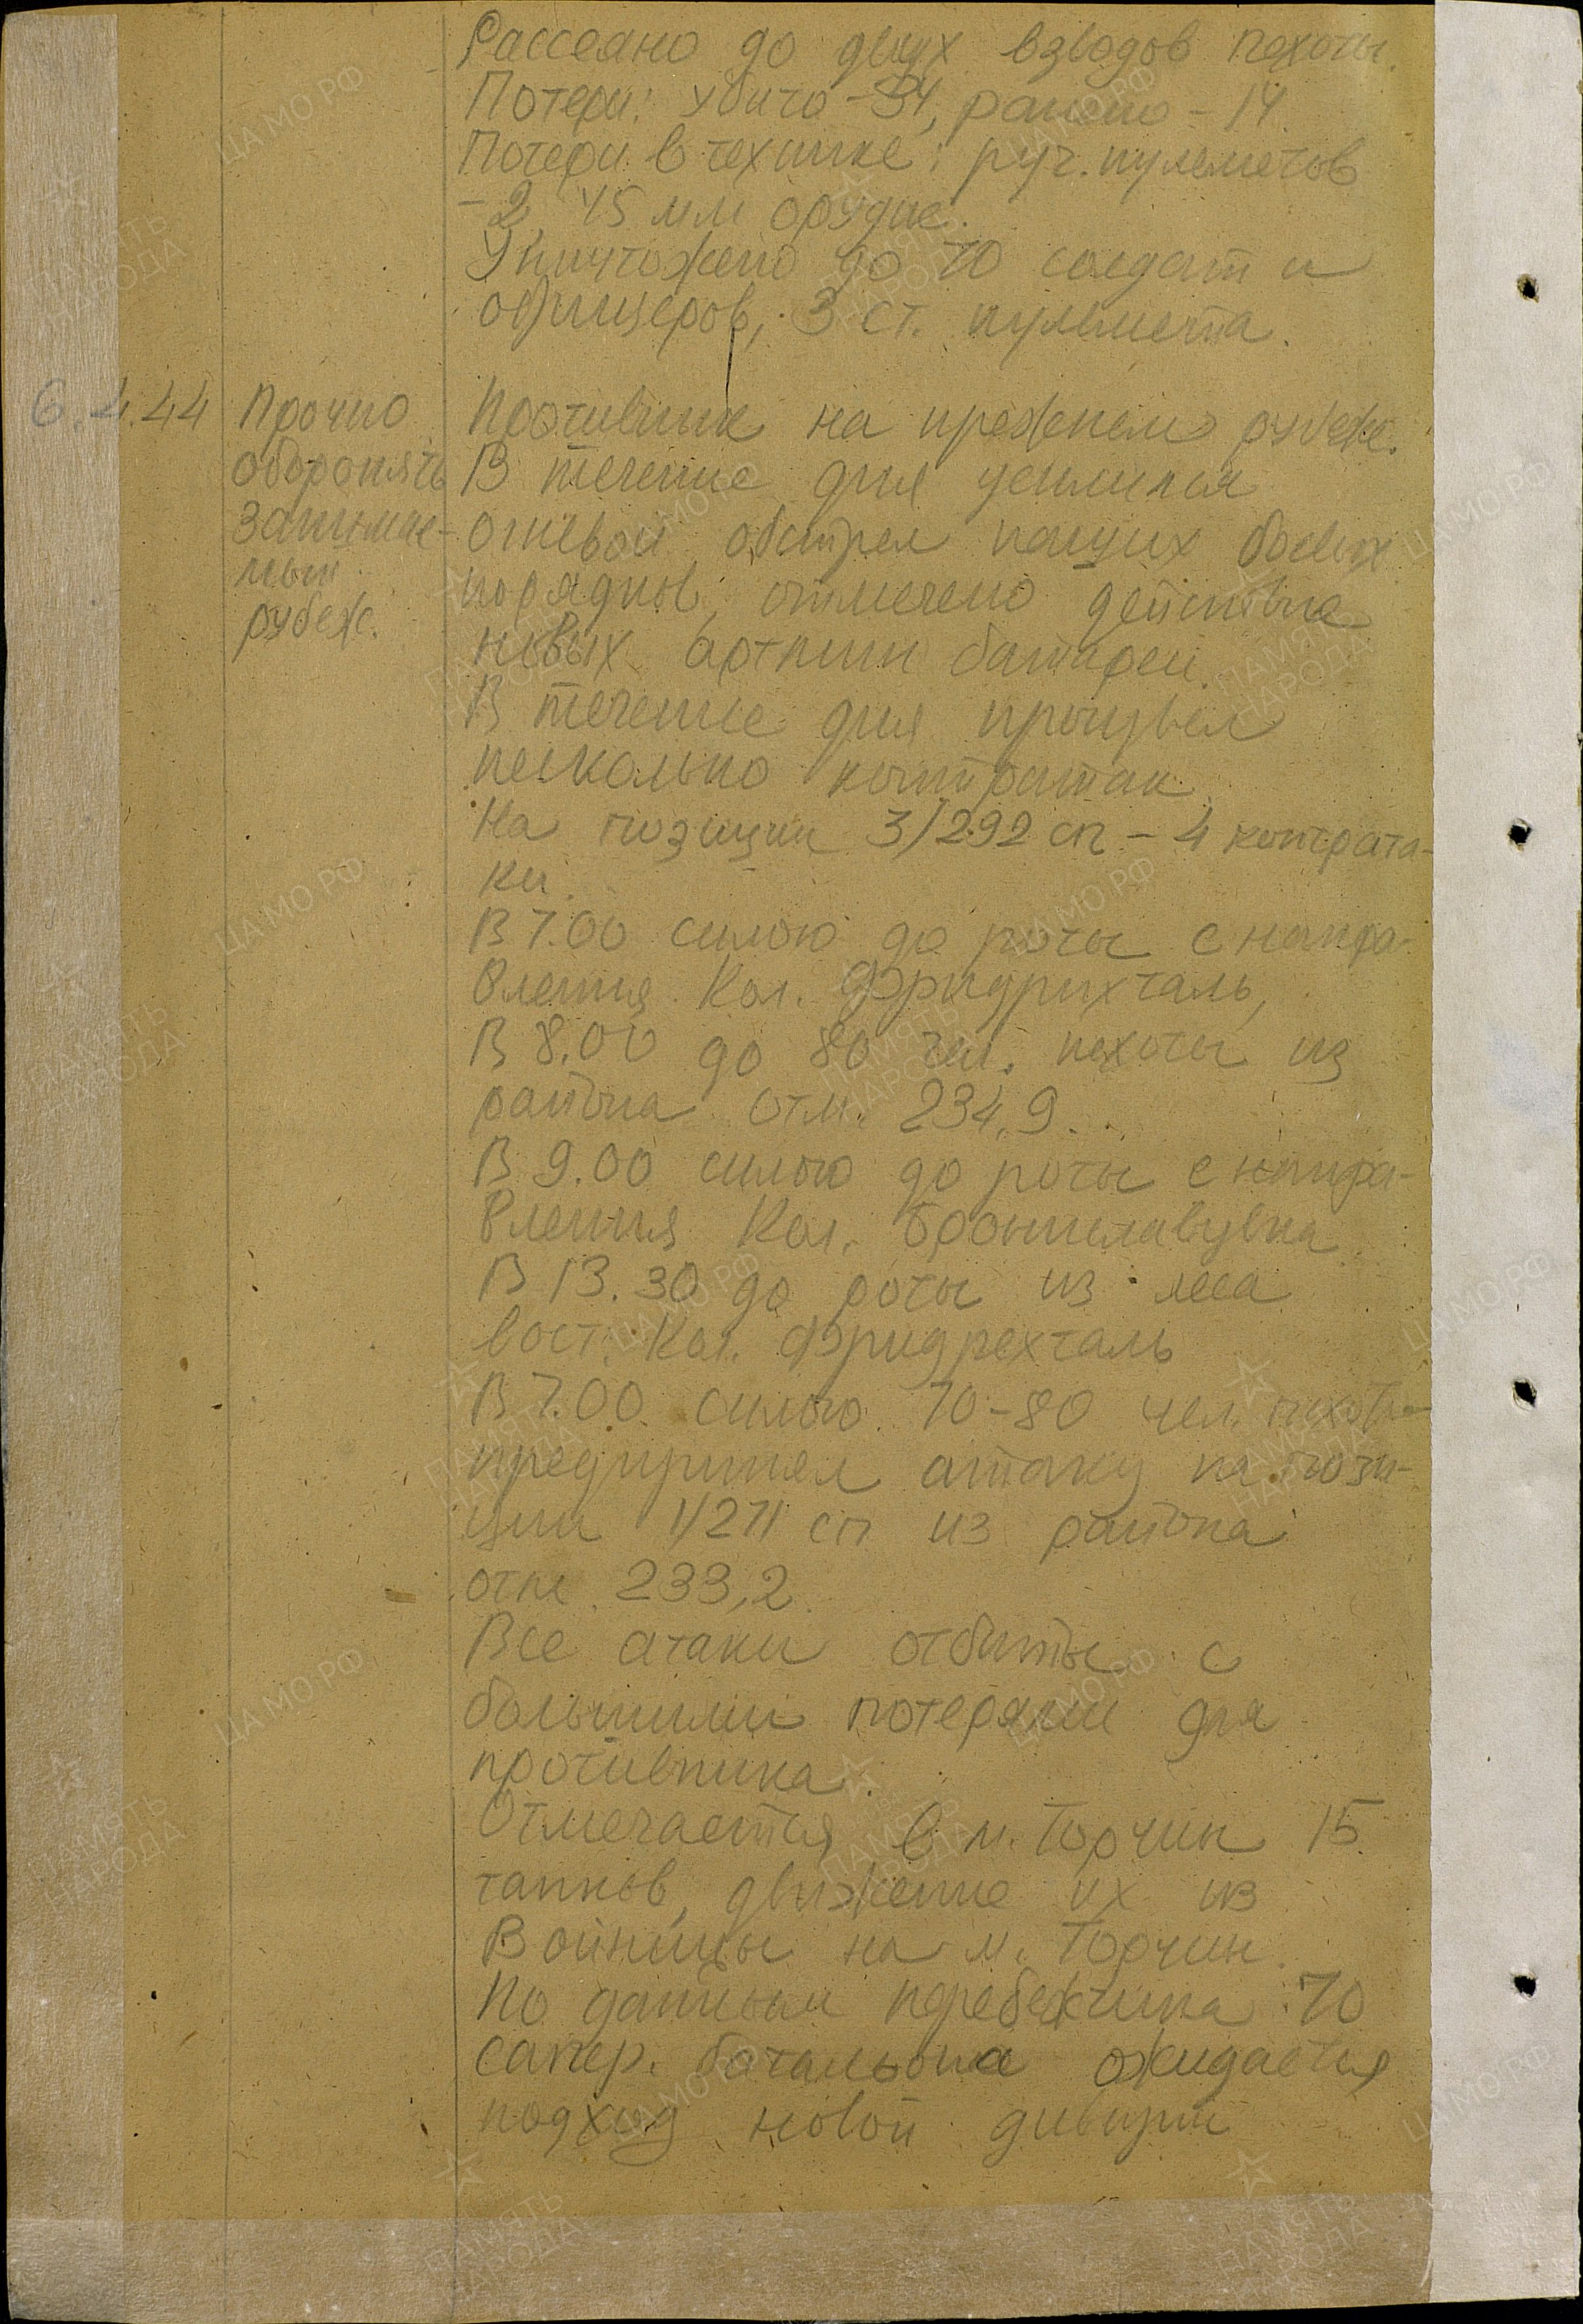 Рассеяно до двух взводов пехоты.
Потери: убито - 34, ранено - 14
Потери в технике: руч. пулеметов
- 2, 45 мм орудие.
Уничтожено до 70 солдат и
офицеров, 3 ст. пулемета.
6.4.44
Прочно
оборонять
занимае-
мый
рубеж.
Противник на прежнем рубеже.
В течение дня усилился
огневой обстрел наших боевых
порядков, отмечено действие
новых артмин батарей.
В течение дня произвел
несколько контратак
На позиции 3/292 сп - 4 контрата-
ки.
В 7.00 силою до роты с напра-
вления Кол. Фридрихталь,
В 8.00 до 80 чел. пехоты из
района отм. 234,9.
В 9.00 силою до роты с напра-
вления Кол. Брониславувка
В 13.30 до роты из леса
вост. Кол. Фридрехталь
В 7.00 силою 70-80 чел. пехоты
предпринял атаку на пози-
ции 1/271 сп из района
отм. 233,2.
Все атаки отбиты с
большими потерями для
противника.
Отмечается в м. Торчин 15
танков, движение их из
Войницы на м. Торчин.
По данным перебежчика 70
сапер. батальона ожидается
подход новой дивизии